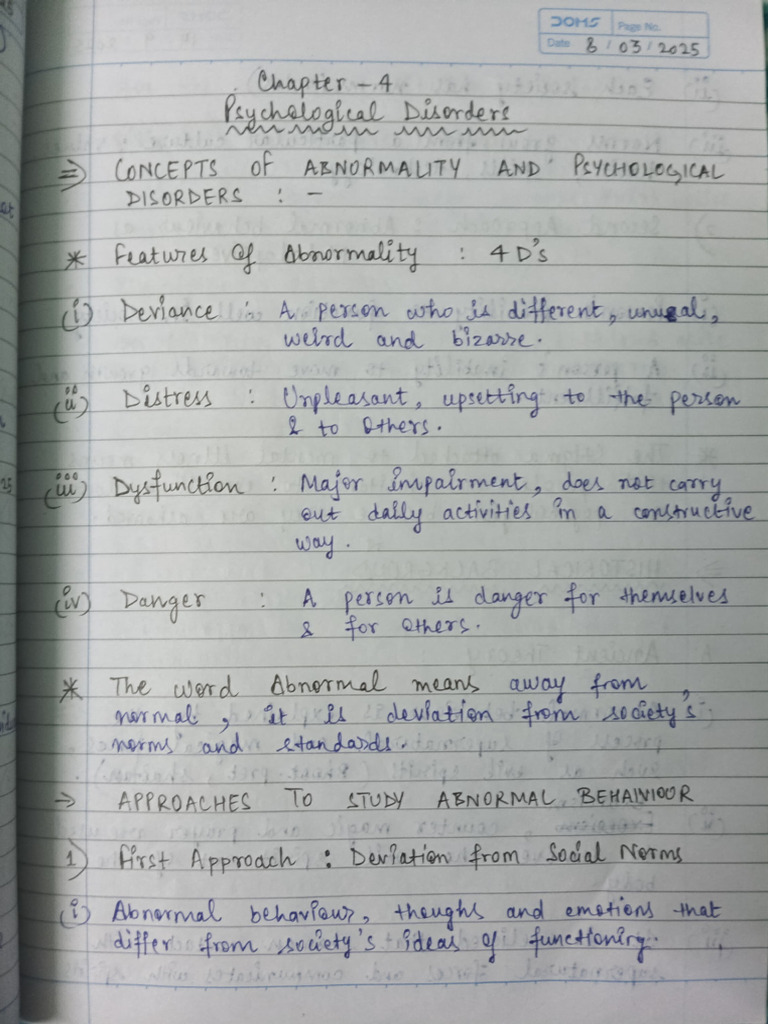 DOMS Page No.
Date 8 / 03 / 2025
Chapter - 4
Psychological Disorders
⇒ CONCEPTS OF ABNORMALITY AND PSYCHOLOGICAL
DISORDERS : -
* Features Of Abnormality : 4 D's
(i) Deviance : A person who is different, unusal,
weird and bizarre.
(ii) Distress : Unpleasant, upsetting to the person
& to others.
(iii) Dysfunction : Major impairment, does not carry
out daily activities in a constructive
way.
(iv) Danger : A person is danger for themselves
& for others.
* The word Abnormal means away from
normal, it is deviation from society's
norms and standards.
→ APPROACHES TO STUDY ABNORMAL BEHAIVIOUR
1) First Approach : Deviation from Social Norms
(i) Abnormal behaviour, thoughts and emotions that
differ from society's ideas of functioning.